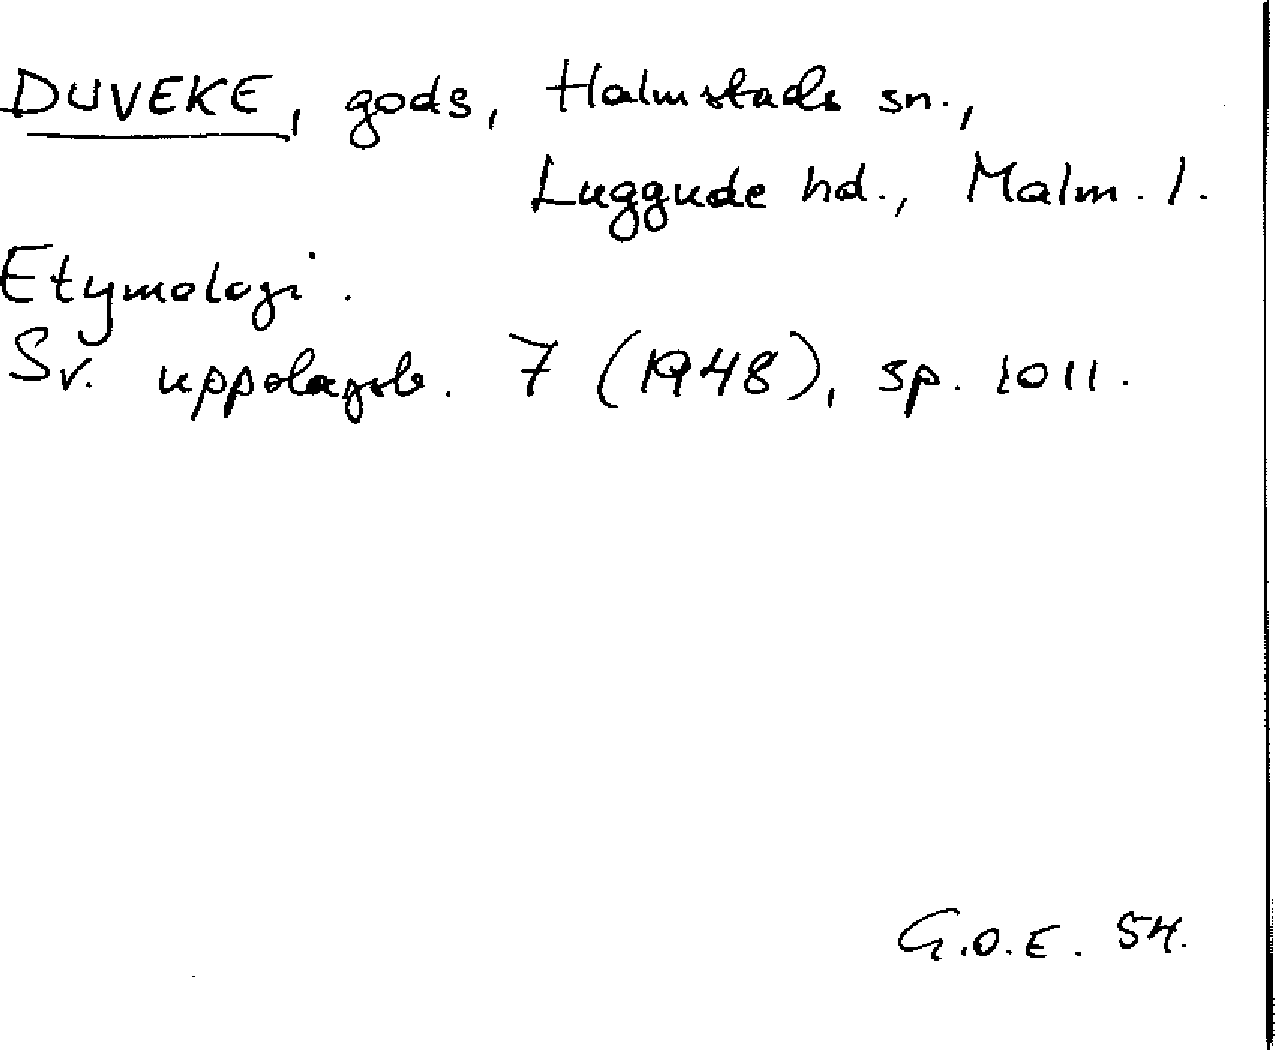 DUVEKE, gods, Halmstads sn.,
Luggude hd., Malm. l.
Etymologi.
Sv. uppslagsb. 7 (1948), sp. 1011.
G.O.E. 54.